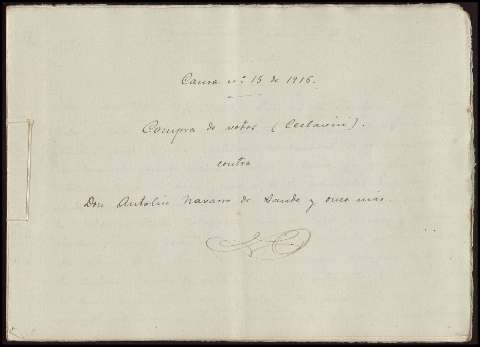 Causa nº 15 de 1916.
Compra de votos (Cectavin).
contra
Don Antolin Navarro de Sande y once más.